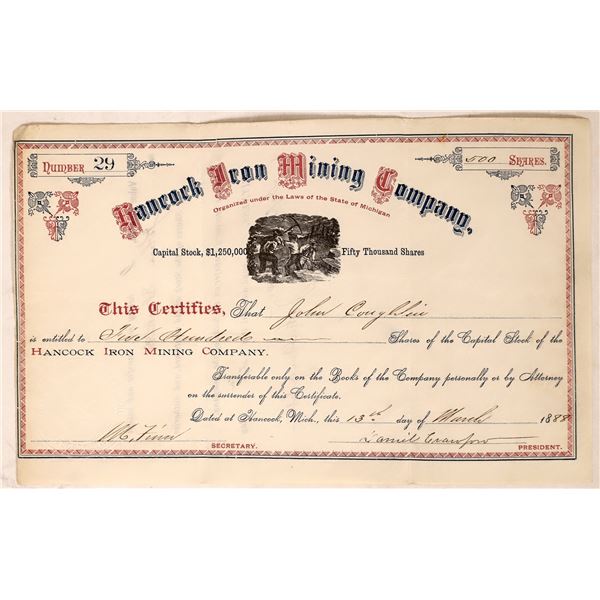 NUMBER 29
500 SHARES.
Hancock Iron Mining Company,
Organized under the Laws of the State of Michigan
Capital Stock, $1,250,000 Fifty Thousand Shares
This Certifies, That John Coughlin
is entitled to Five Hundred Shares of the Capital Stock of the
HANCOCK IRON MINING COMPANY.
Transferable only on the Books of the Company personally or by Attorney
on the surrender of this Certificate.
Dated at Hancock, Mich., this 13th day of March 1888
M. Finn Daniel Crawford
SECRETARY. PRESIDENT.